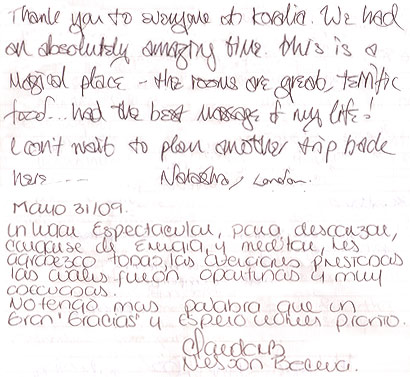 Thank you to everyone at Koralia. We had
an absolutely amazing time. this is a
magical place - the rooms are great, terrific
food... had the best massage of my life!
I can't wait to plan another trip back
here ---- Natasha, London.
Mayo 31/09.
Un lugar Espectacular, para descanzar,
cargarse de Energia, y meditar, les
agradezco todas las atenciones prestadas
las cuales fueron oportunas y muy
No tengo mas palabra que un
Gran "Gracias" y espero volver pronto.
Nelson Becerra.